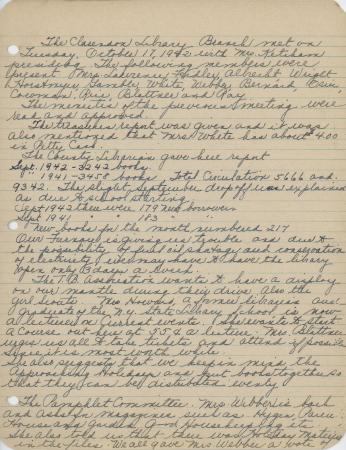 The Clarendon Library Branch met on
Tuesday, October 17, 1942 with Mrs. Ketcham
presiding. The following members were
present. Mrs. Lawrence, Hadley, Albrecht, Wright
Gamble, White, Webber, Bernard,
Cowman, and
The minutes of the previous meeting were
read and approved.
The treasurers report was given and it was
also mentioned that Mrs White has about $4.00
in Petty Cash.
The County Librarian gave her report
Sept. 1942 - 3242 books
" 1941 - 3458 books. Total Circulation 5666 and
9342. The slight September dropoff was explained
as due to school starting.
Sept 1942 there were 179 new borrowers
Sept 1941 " " 183 " "
New books for the month numbered 217
Our Furnace is giving us trouble and due to
the possibility of fuel oil shortage and conservation
of electricity, we may have to have the library
open only 3 days a week.
The T B Association wants to have a display
on our mantle during their drive. Also the
girl scouts. Mrs Howard, a former librarian and
graduate of the N.Y. State Library School is now
a lecturer on Current events. She wants to start
a course out here at 35¢ a lecture. Mrs
urges us all to take tickets and attend if possible
since it is most worth while.
She also suggests that we keep in mind the
approaching Holidays and put books together so
that they can be distributed evenly
The Pamphlet Committee. Mrs Webber is back
and asks for magazines such as Hygeia, Parents
House and garden, Good Housekeeping etc.
She also told us that there was Holiday Material
in the files. We all gave Mrs Webber a vote of